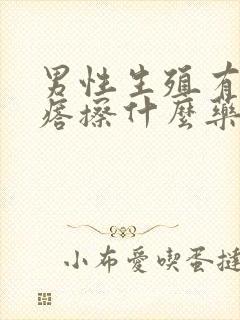 男性生殖有
痞擦什麼藥
小布愛喫蛋撻